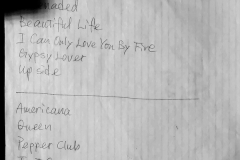 Beautiful Life
I Can Only Love You By Fire
Gypsy Lover
Up side
Americana
Queen
Pepper Club